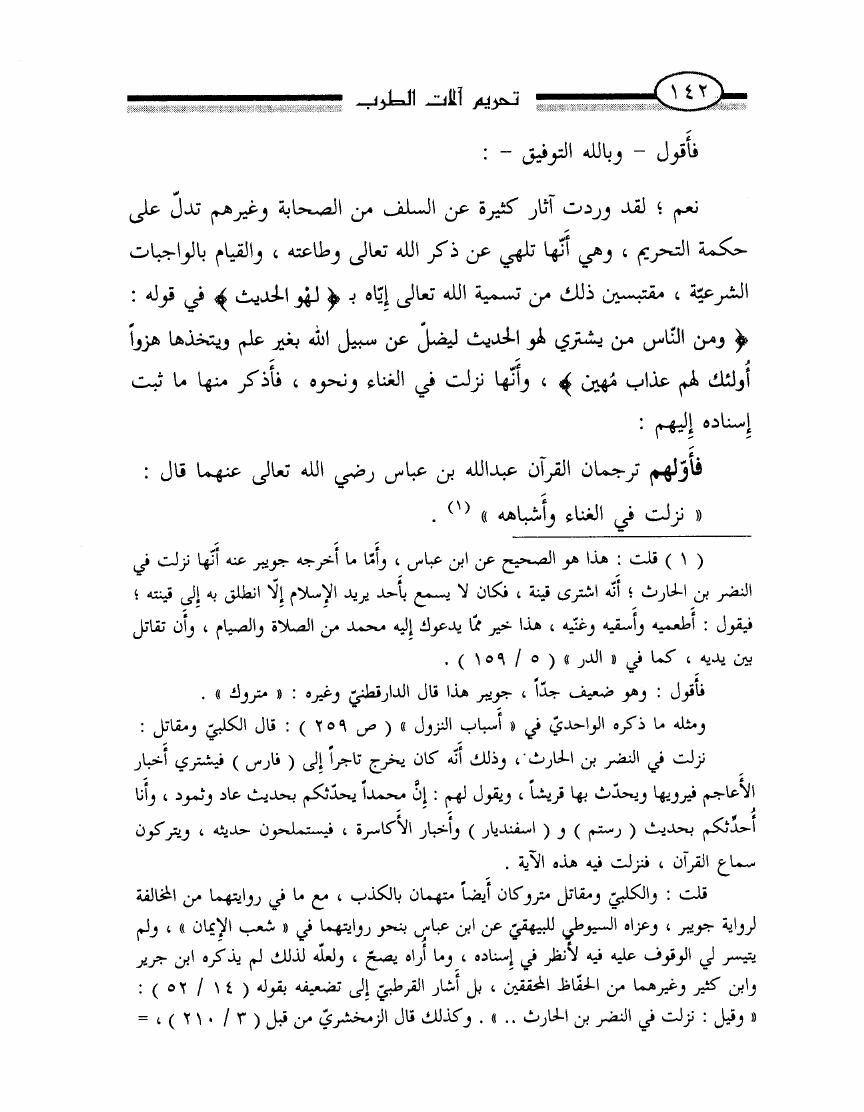 ١٤٢ تحريم آلات الطرب
فأَقول – وبالله التوفيق – :
نعم ؛ لقد وردت آثار كثيرة عن السلف من الصحابة وغيرهم تدلّ على
حكمة التحريم ، وهي أَنّها تلهي عن ذكر الله تعالى وطاعته ، والقيام بالواجبات
الشرعيّة ، مقتبسين ذلك من تسمية الله تعالى إِيّاه بـ ﴿ لهْو الحديث ﴾ في قوله :
﴿ ومن النّاس من يشتري لهو الحديث ليضلّ عن سبيل الله بغير علم ويتخذها هزواً
أُولئك لهم عذاب مُهين ﴾ ، وأَنّها نزلت في الغناء ونحوه ، فأَذكر منها ما ثبت
إِسناده إِليهم :
فأَوّلهم ترجمان القرآن عبدالله بن عباس رضي الله تعالى عنهما قال :
« نزلت في الغناء وأَشباهه » (١) .
( ١ ) قلت : هذا هو الصحيح عن ابن عباس ، وأَمّا ما أَخرجه جويبر عنه أَنّها نزلت في
النضر بن الحارث ؛ أَنّه اشترى قينة ، فكان لا يسمع بأَحد يريد الإِسلام إِلّا انطلق به إِلى قينته ؛
فيقول : أَطعميه وأَسقيه وغنّيه ، هذا خير ممّا يدعوك إِليه محمد من الصلاة والصيام ، وأَن تقاتل
بين يديه ، كما في « الدر » ( ٥ / ١٥٩ ) .
فأَقول : وهو ضعيف جدّاً ، جويبر هذا قال الدارقطنيّ وغيره : « متروك » .
ومثله ما ذكره الواحديّ في « أَسباب النزول » ( ص ٢٥٩ ) : قال الكلبيّ ومقاتل :
نزلت في النضر بن الحارث ، وذلك أَنّه كان يخرج تاجراً إِلى ( فارس ) فيشتري أَخبار
الأَعاجم فيرويها ويحدّث بها قريشاً ، ويقول لهم : إِنَّ محمداً يحدّثكم بحديث عاد وثمود ، وأَنا
أُحدِّثكم بحديث ( رستم ) و ( اسفنديار ) وأَخبار الأَكاسرة ، فيستملحون حديثه ، ويتركون
سماع القرآن ، فنزلت فيه هذه الآية .
قلت : والكلبيّ ومقاتل متروكان أَيضاً متهمان بالكذب ، مع ما في روايتهما من المخالفة
لرواية جويبر ، وعزاه السيوطي للبيهقيّ عن ابن عباس بنحو روايتهما في « شعب الإِيمان » ، ولم
يتيسر لي الوقوف عليه فيه لأَنظر في إِسناده ، وما أُراه يصحّ ، ولعلّه لذلك لم يذكره ابن جرير
وابن كثير وغيرهما من الحفّاظ المحققين ، بل أَشار القرطبيّ إِلى تضعيفه بقوله ( ١٤ / ٥٢ ) :
« وقيل : نزلت في النضر بن الحارث .. » . وكذلك قال الزمخشريّ من قبل ( ٣ / ٢١٠ ) ، =